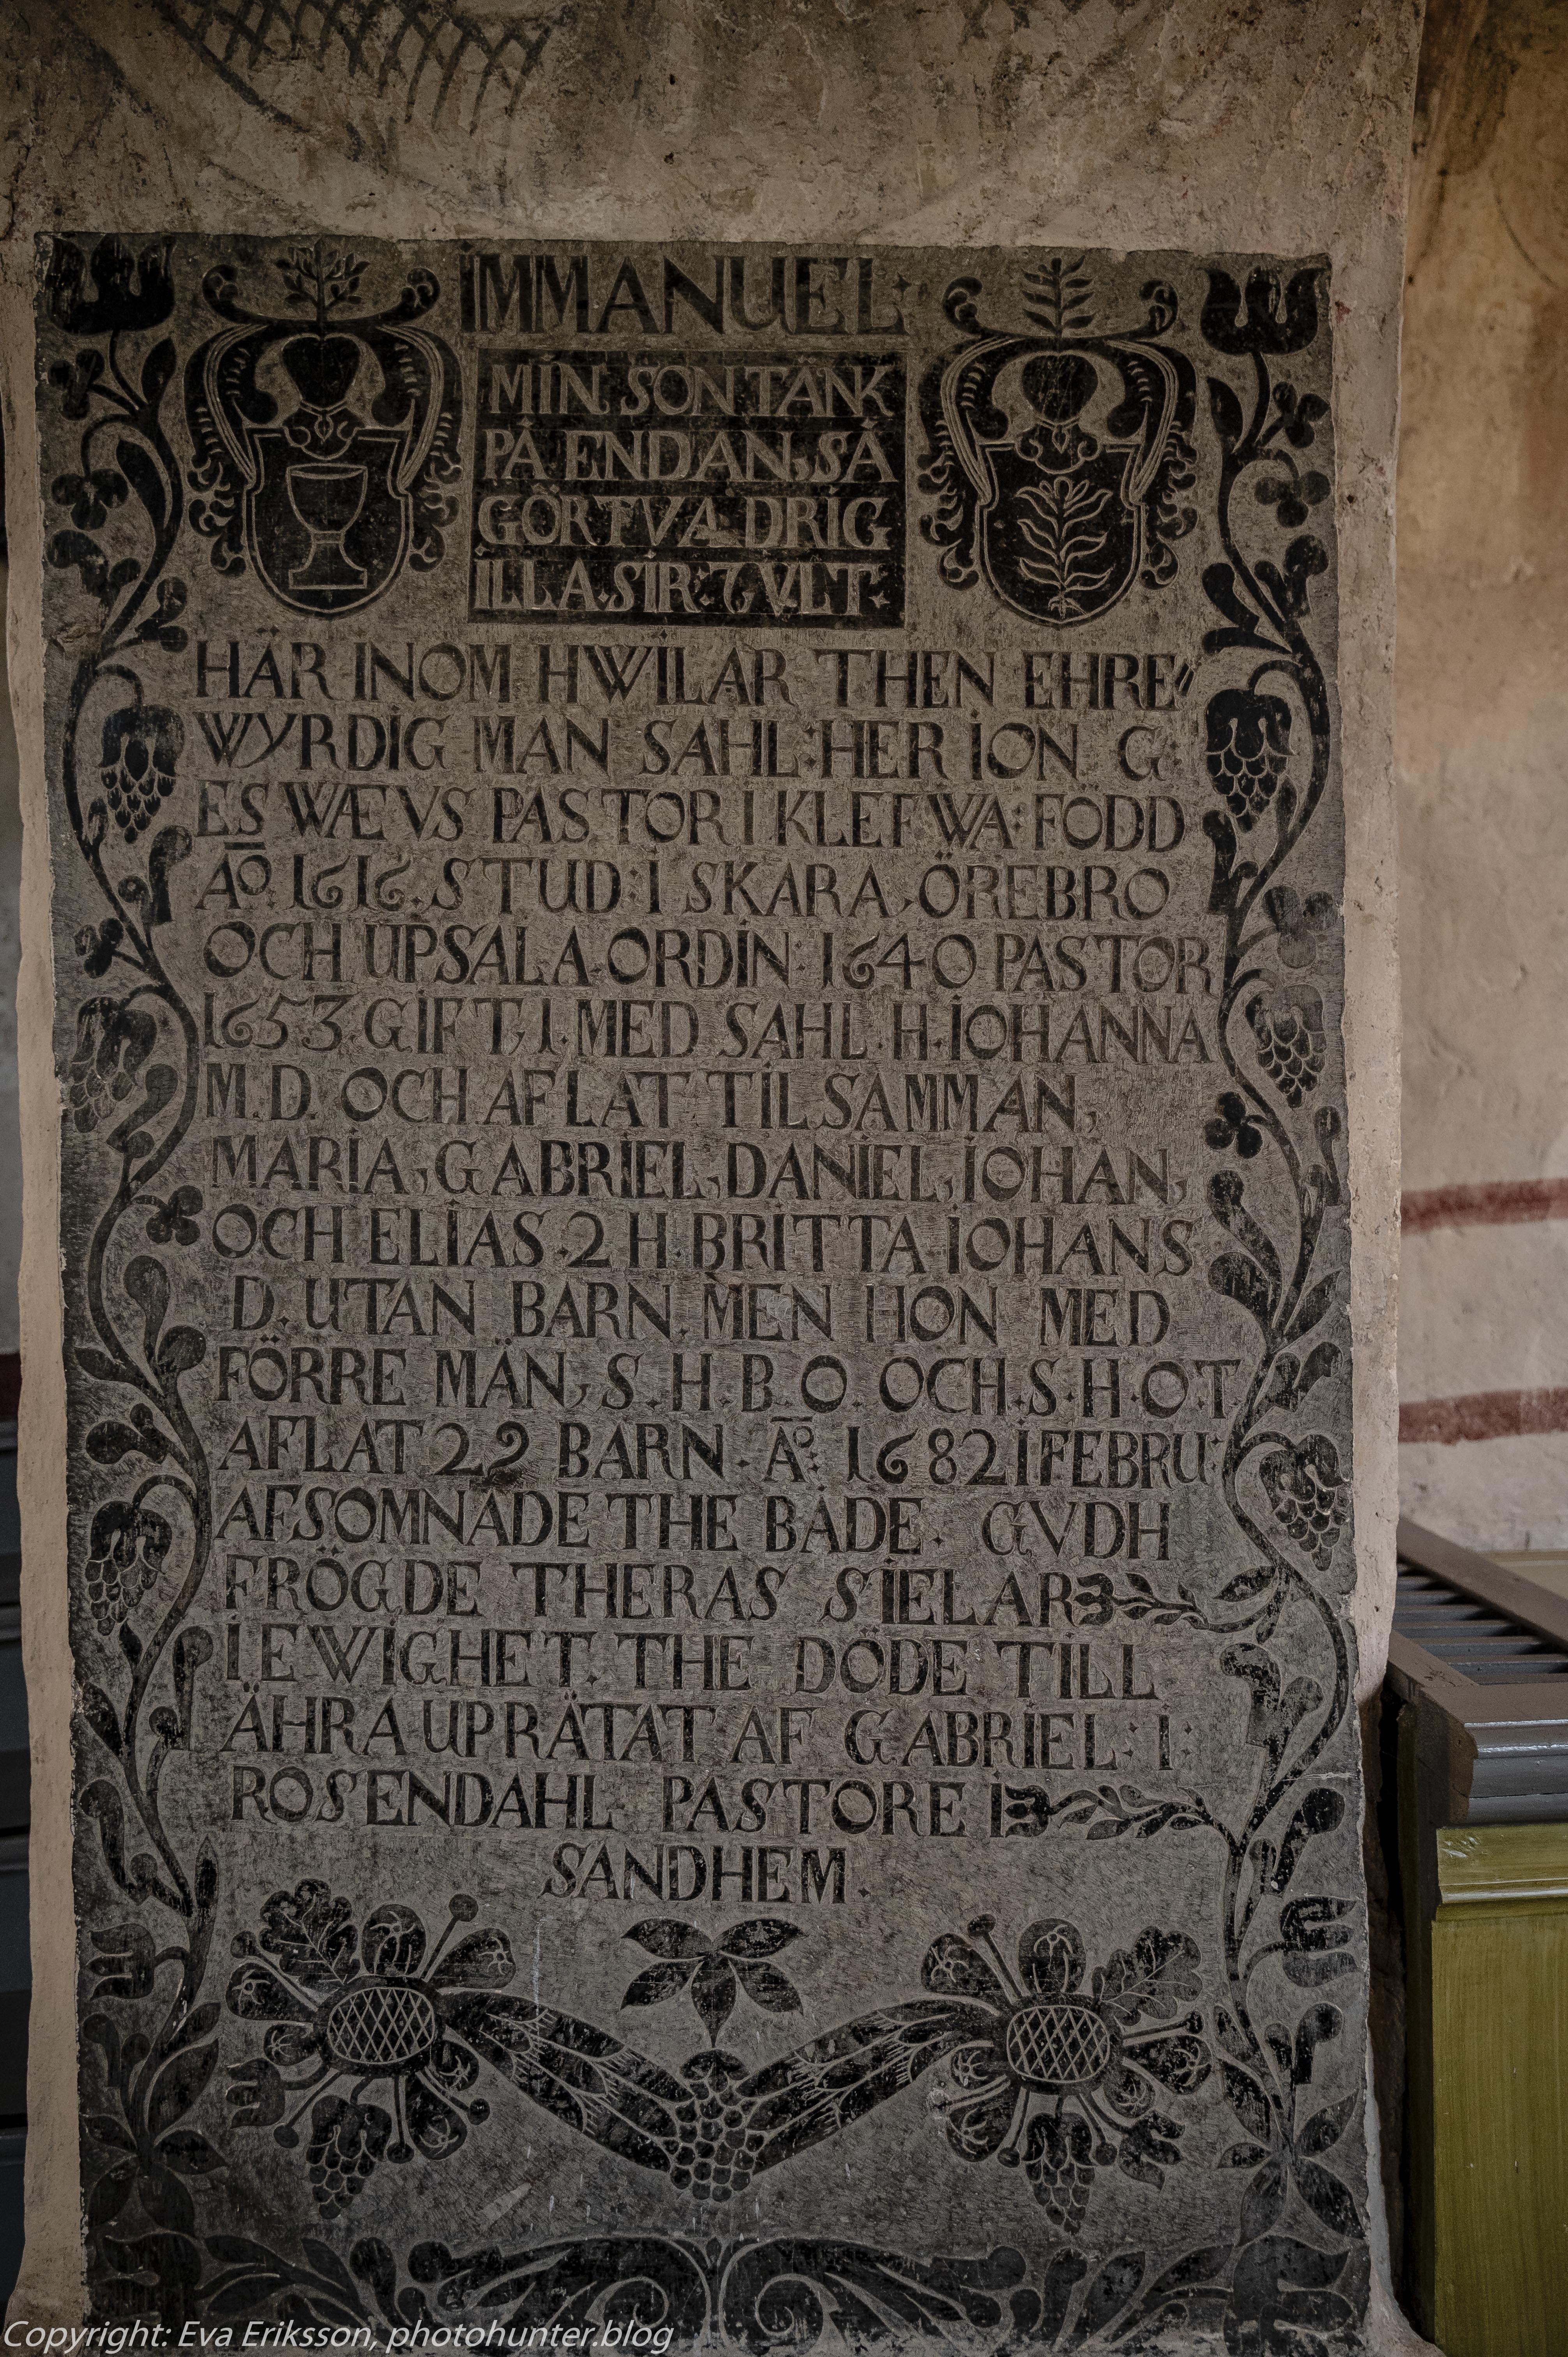 IMMANUEL
MIN SON TÄNK
PÅ ENDAN, SÅ
GÖR TV A DRIG
ILLA. SIR: 7 V. LT:
HÄR INOM HWILAR THEN EHRE
WYRDIG MAN SAHL: HER ION G
ESWÆVS PASTOR I KLEFWA: FÖDD
Aō. 1616. STUD: I SKARA, ÖREBRO
OCH UPSALA ORDIN: 1640 PASTOR
1653. GIFT, 1. MED SAHL. H. IOHANNA
M. D. OCH AFLAT TILSAMMAN,
MARIA, GABRIEL, DANIEL, IOHAN,
OCH ELIAS. 2 H. BRITTA IOHANS
D. UTAN BARN. MEN HON MED
FÖRRE MÄN, S. H. B. O. OCH. S. H. O. T.
AFLAT 22 BARN. Aō. 1682 I FEBRU:
AFSOMNADE THE BÅDE. GVDH
FRÖGDE THERAS SIELAR
I EWIGHET. THE DÖDE TILL
ÄHRA UPRÄTAT AF GABRIEL: I:
ROSENDAHL PASTORE I
SANDHEM.
Copyright: Eva Eriksson, photohunter.blog